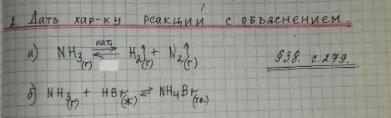 1. Дать хар-ку реакций с объяснением.
а) NH₃(г) ⇄ кат. H₂↑(г) + N₂↑(г)
§38. с.279.
б) NH₃(г) + HBr(ж) ⇄ NH₄Br(тв.)